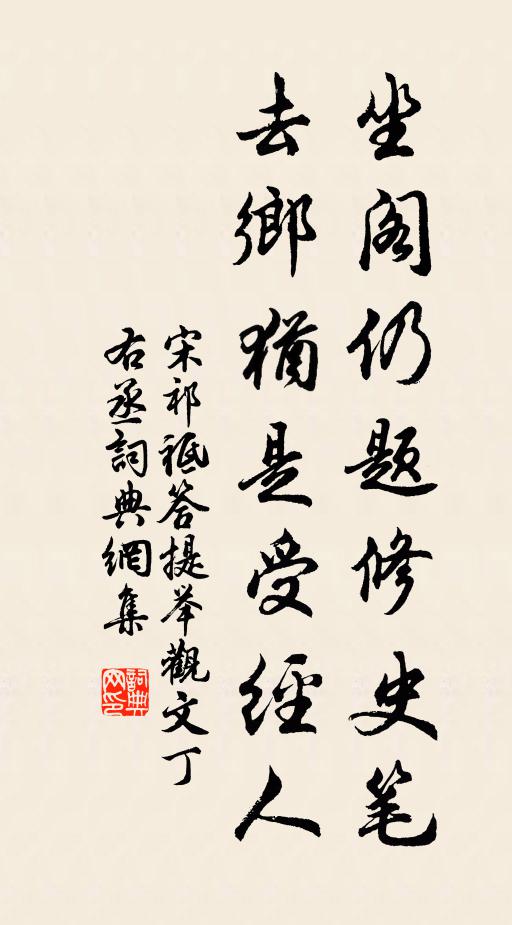 坐阁仍题修史笔
去鄉猶是受經人
宋祁祗答提举觀文丁
右丞詞典網集
詞典网印